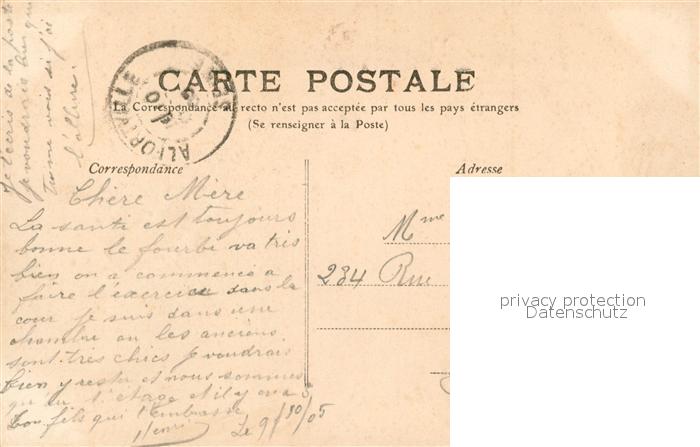 Je t'écris de la poste
je voudrais bien que
tu me vois si j'ai
l'allure.
ALFORTVILLE
CARTE POSTALE
La Correspondance au recto n'est pas acceptée par tous les pays étrangers
(Se renseigner à la Poste)
Correspondance
Adresse
Chère Mère
La santé est toujours
bonne le fourbi va très
bien on a commencé a
faire l'exercice dans la
cour je suis dans une
chambre ou les anciens
sont très chics je voudrais
bien y rester et nous sommes
qu au 1 étage et il y en a 3
Ton fils qui t'embrasse
Henri
Le 9/10/05
Mme
234 Rue
privacy protection
Datenschutz